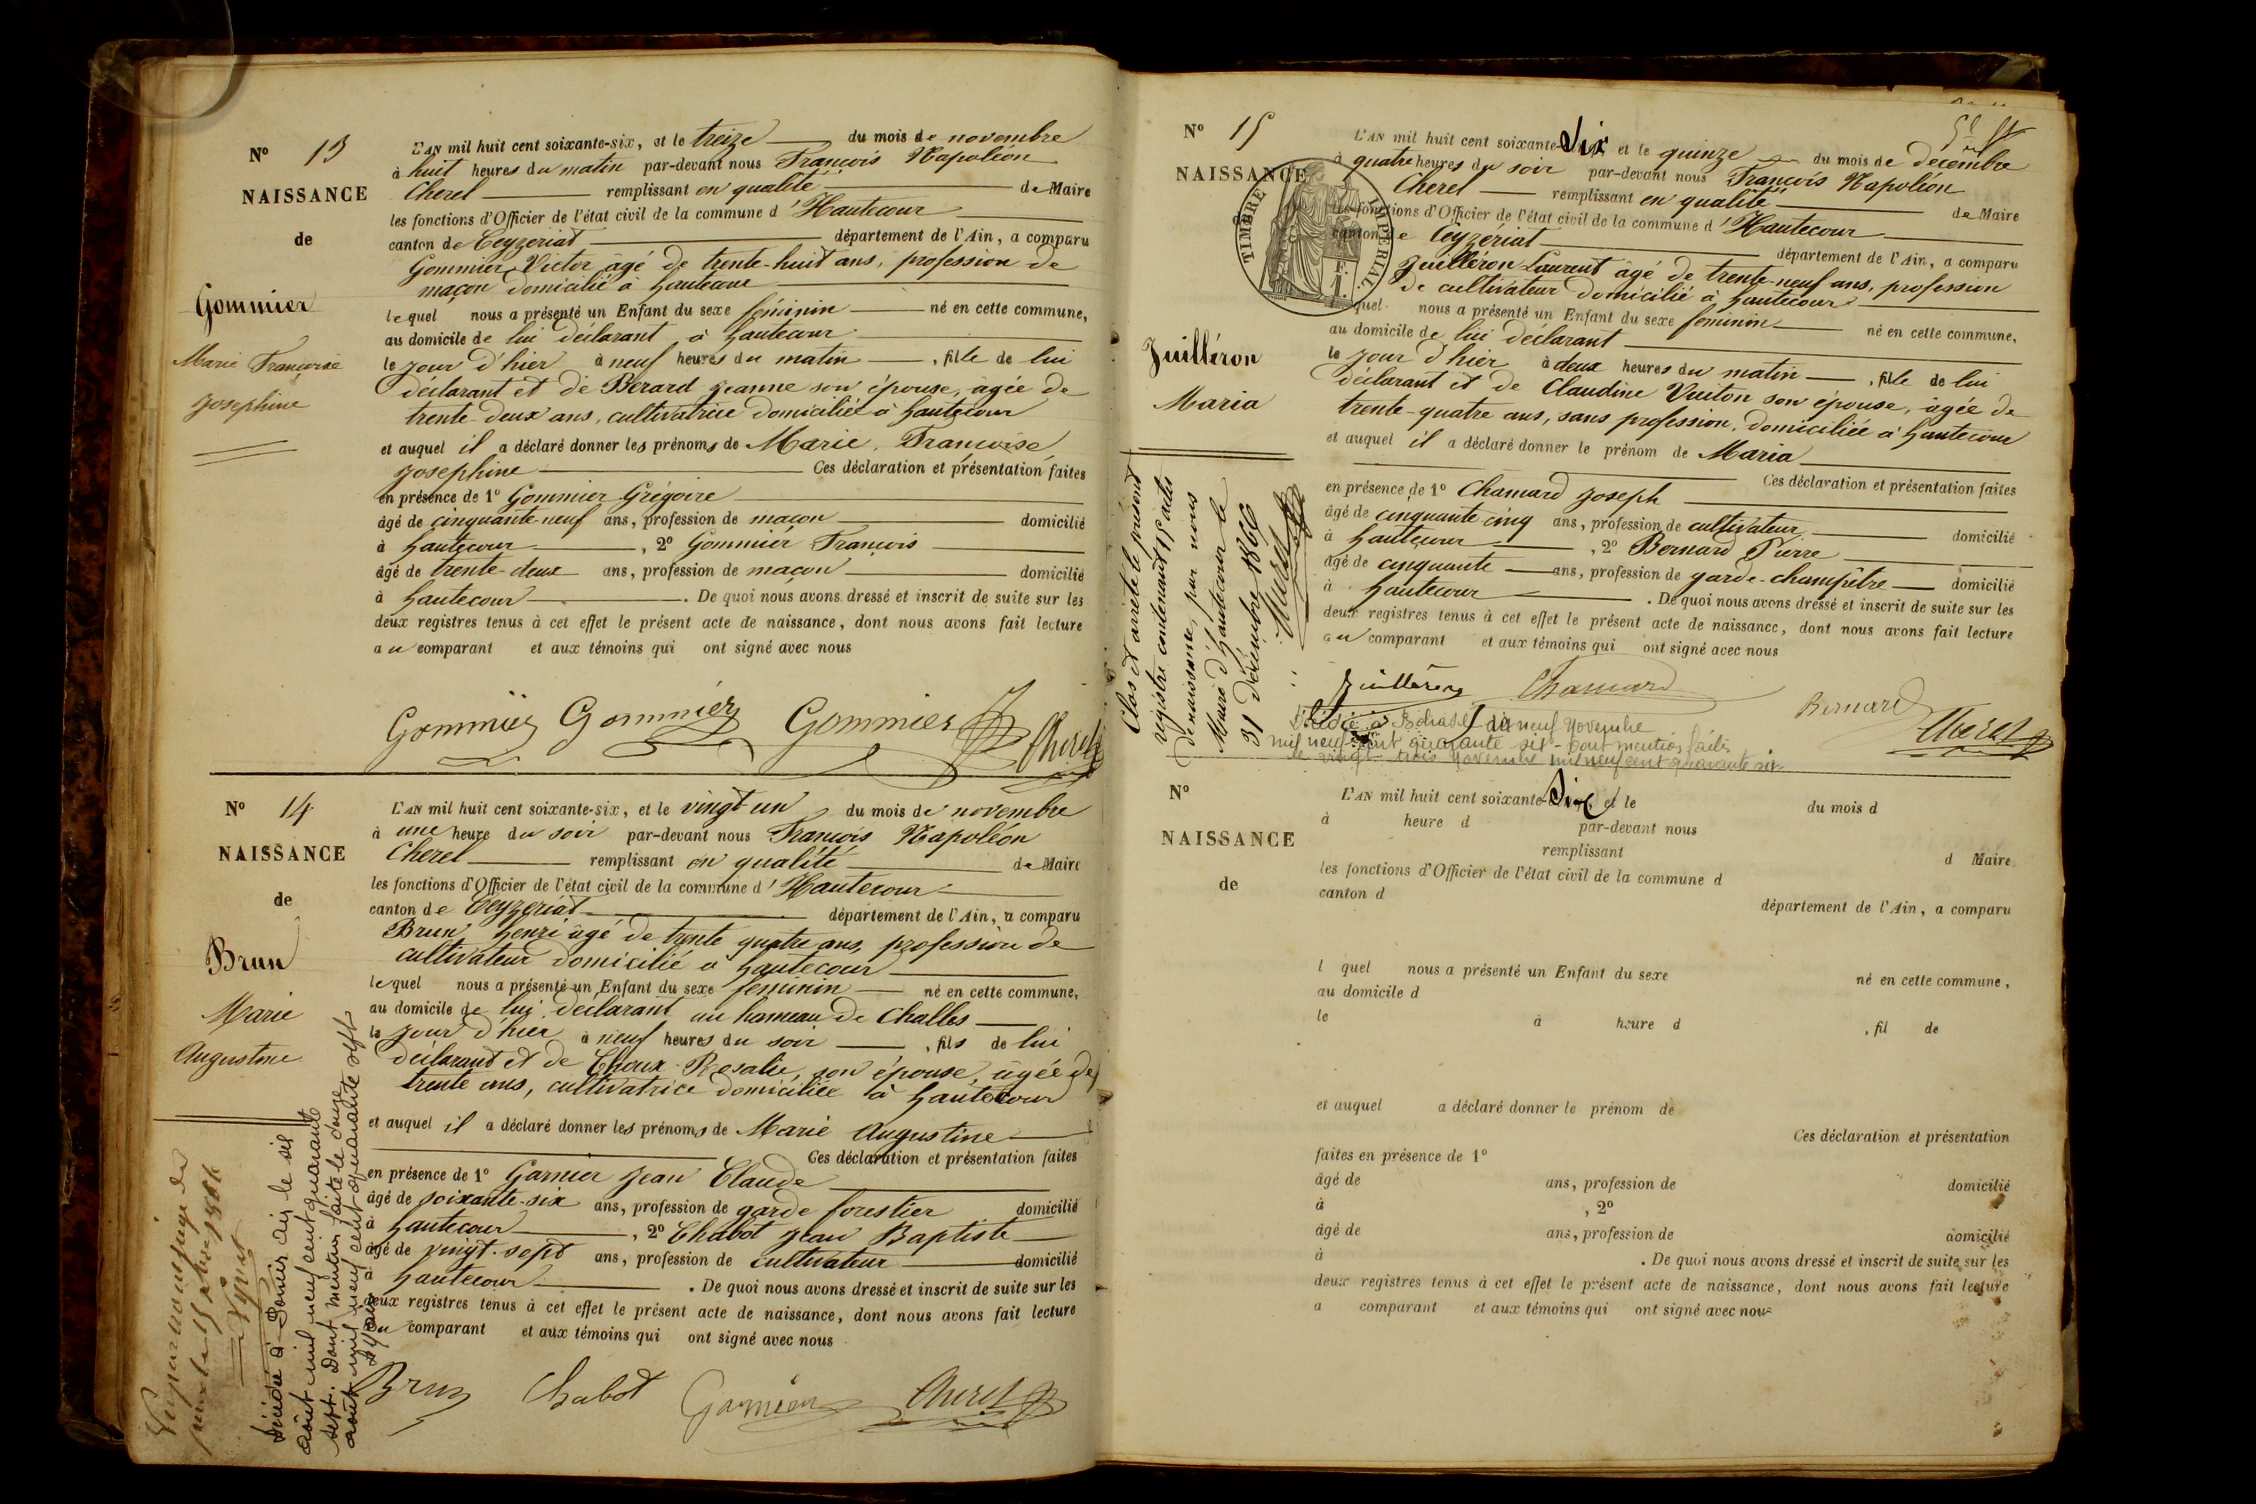 N° 13
NAISSANCE
de
Gommier
Marie Françoise
Josephine
L'AN mil huit cent soixante-six, et le treize du mois de novembre
à huit heures du matin par-devant nous François Napoléon
Cherel remplissant en qualité de Maire
les fonctions d'Officier de l'état civil de la commune d'Hautecour
canton de Ceyzeriat département de l'Ain, a comparu
Gommier Victor âgé de trente-huit ans, profession de
maçon domicilié à hautecour
lequel nous a présenté un Enfant du sexe féminin né en cette commune,
au domicile de lui déclarant à hautecour
le jour d'hier à neuf heures du matin, fille de lui
déclarant et de Bérard Jeanne son épouse, âgée de
trente-deux ans, cultivatrice domiciliée à hautecour
et auquel il a déclaré donner les prénoms de Marie, Françoise
Josephine Ces déclaration et présentation faites
en présence de 1° Gommier Grégoire
âgé de cinquante-neuf ans, profession de maçon domicilié
à hautecour, 2° Gommier François
âgé de trente-deux ans, profession de maçon domicilié
à hautecour. De quoi nous avons dressé et inscrit de suite sur les
deux registres tenus à cet effet le présent acte de naissance, dont nous avons fait lecture
au comparant et aux témoins qui ont signé avec nous
Gommier Gommier Gommier Cherel
N° 14
NAISSANCE
de
Brun
Marie
Augustine
L'AN mil huit cent soixante-six, et le vingt un du mois de novembre
à une heure du soir par-devant nous François Napoléon
Cherel remplissant en qualité de Maire
les fonctions d'Officier de l'état civil de la commune d'Hautecour
canton de Ceyzeriat département de l'Ain, a comparu
Brun henri âgé de trente quatre ans, profession de
cultivateur domicilié à hautecour
lequel nous a présenté un Enfant du sexe féminin né en cette commune,
au domicile de lui déclarant au hameau de Challes
le jour d'hier à neuf heures du soir, fils de lui
déclarant et de Choux Rosalie, son épouse, âgée de
trente ans, cultivatrice domiciliée à hautecour
et auquel il a déclaré donner les prénoms de Marie Augustine
Ces déclaration et présentation faites
en présence de 1° Garnier Jean Claude
âgé de soixante-six ans, profession de garde forestier domicilié
à hautecour, 2° Chabot Jean Baptiste
âgé de vingt-sept ans, profession de cultivateur domicilié
à hautecour. De quoi nous avons dressé et inscrit de suite sur les
deux registres tenus à cet effet le présent acte de naissance, dont nous avons fait lecture
au comparant et aux témoins qui ont signé avec nous
Brun Chabot Garnier Cherel
le six
août mil neuf cent quarante
sept. Dont mention faite le douze
août mil neuf cent quarante sept
Clos et arrêté le présent
registre contenant 15 actes
de naissance, par nous
Maire d'Hautecour le
31 décembre 1866
Cherel
N° 15
NAISSANCE
Juilléron
Maria
TIMBRE IMPERIAL
F.
1.
L'AN mil huit cent soixante-Six et le quinze du mois de décembre
à quatre heures du soir par-devant nous François Napoléon
Cherel remplissant en qualité de Maire
les fonctions d'Officier de l'état civil de la commune d'Hautecour
canton de Ceyzériat département de l'Ain, a comparu
Juilléron Laurent âgé de trente-neuf ans, profession
de cultivateur domicilié à hautecour
quel nous a présenté un Enfant du sexe féminin né en cette commune,
au domicile de lui déclarant
le jour d'hier à deux heures du matin, fille de lui
déclarant et de Claudine Vuiton son épouse, âgée de
trente-quatre ans, sans profession, domiciliée à hautecour
et auquel il a déclaré donner le prénom de Maria
Ces déclaration et présentation faites
en présence de 1° Chamard Joseph
âgé de cinquante cinq ans, profession de cultivateur domicilié
à hautecour, 2° Bernard Pierre
âgé de cinquante ans, profession de garde-champêtre domicilié
à hautecour. De quoi nous avons dressé et inscrit de suite sur les
deux registres tenus à cet effet le présent acte de naissance, dont nous avons fait lecture
au comparant et aux témoins qui ont signé avec nous
Juilléron Chamard Bernard Cherel
Décédée à dix neuf Novembre
mil neuf cent quarante six - Dont mention faite
le vingt trois Novembre mil neuf cent quarante six
N°
NAISSANCE
de
L'AN mil huit cent soixante-Six et le du mois d
à heure d par-devant nous
remplissant d Maire
les fonctions d'Officier de l'état civil de la commune d
canton d département de l'Ain, a comparu
l quel nous a présenté un Enfant du sexe né en cette commune,
au domicile d
le à heure d , fil de
et auquel a déclaré donner le prénom de
Ces déclaration et présentation
faites en présence de 1°
âgé de ans, profession de domicilié
à , 2°
âgé de ans, profession de domicilié
à . De quoi nous avons dressé et inscrit de suite sur les
deux registres tenus à cet effet le présent acte de naissance, dont nous avons fait lecture
a comparant et aux témoins qui ont signé avec nous